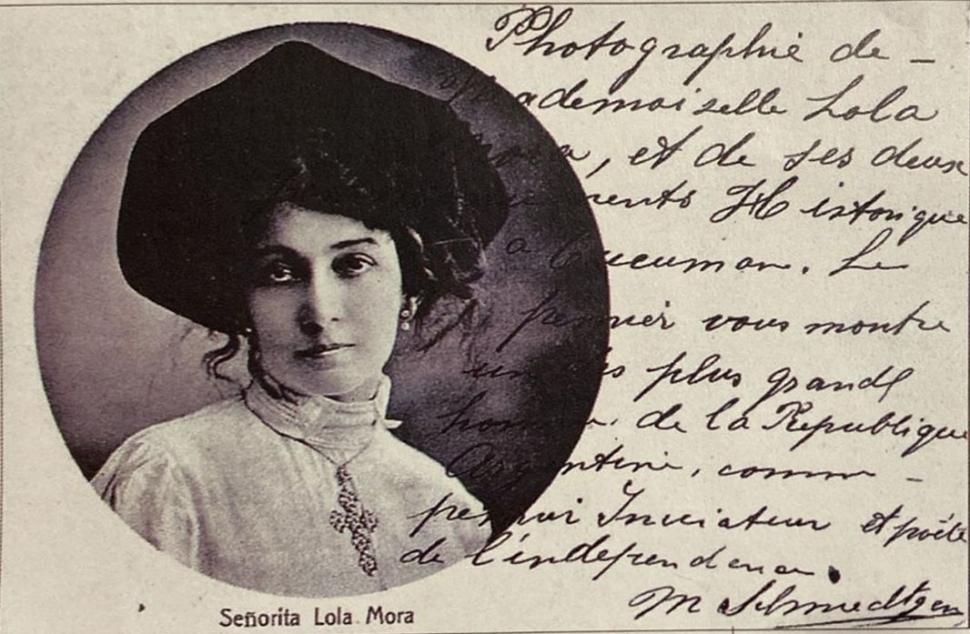 Photographie de -
Mademoiselle Lola
Mora, et de ses deux
Historique
a Tucuman. Le
premier vous montre
un des plus grand
homme de la Republique
Argentine, comm -
premier Iniciateur et poéte
de l'independance.
Señorita Lola Mora